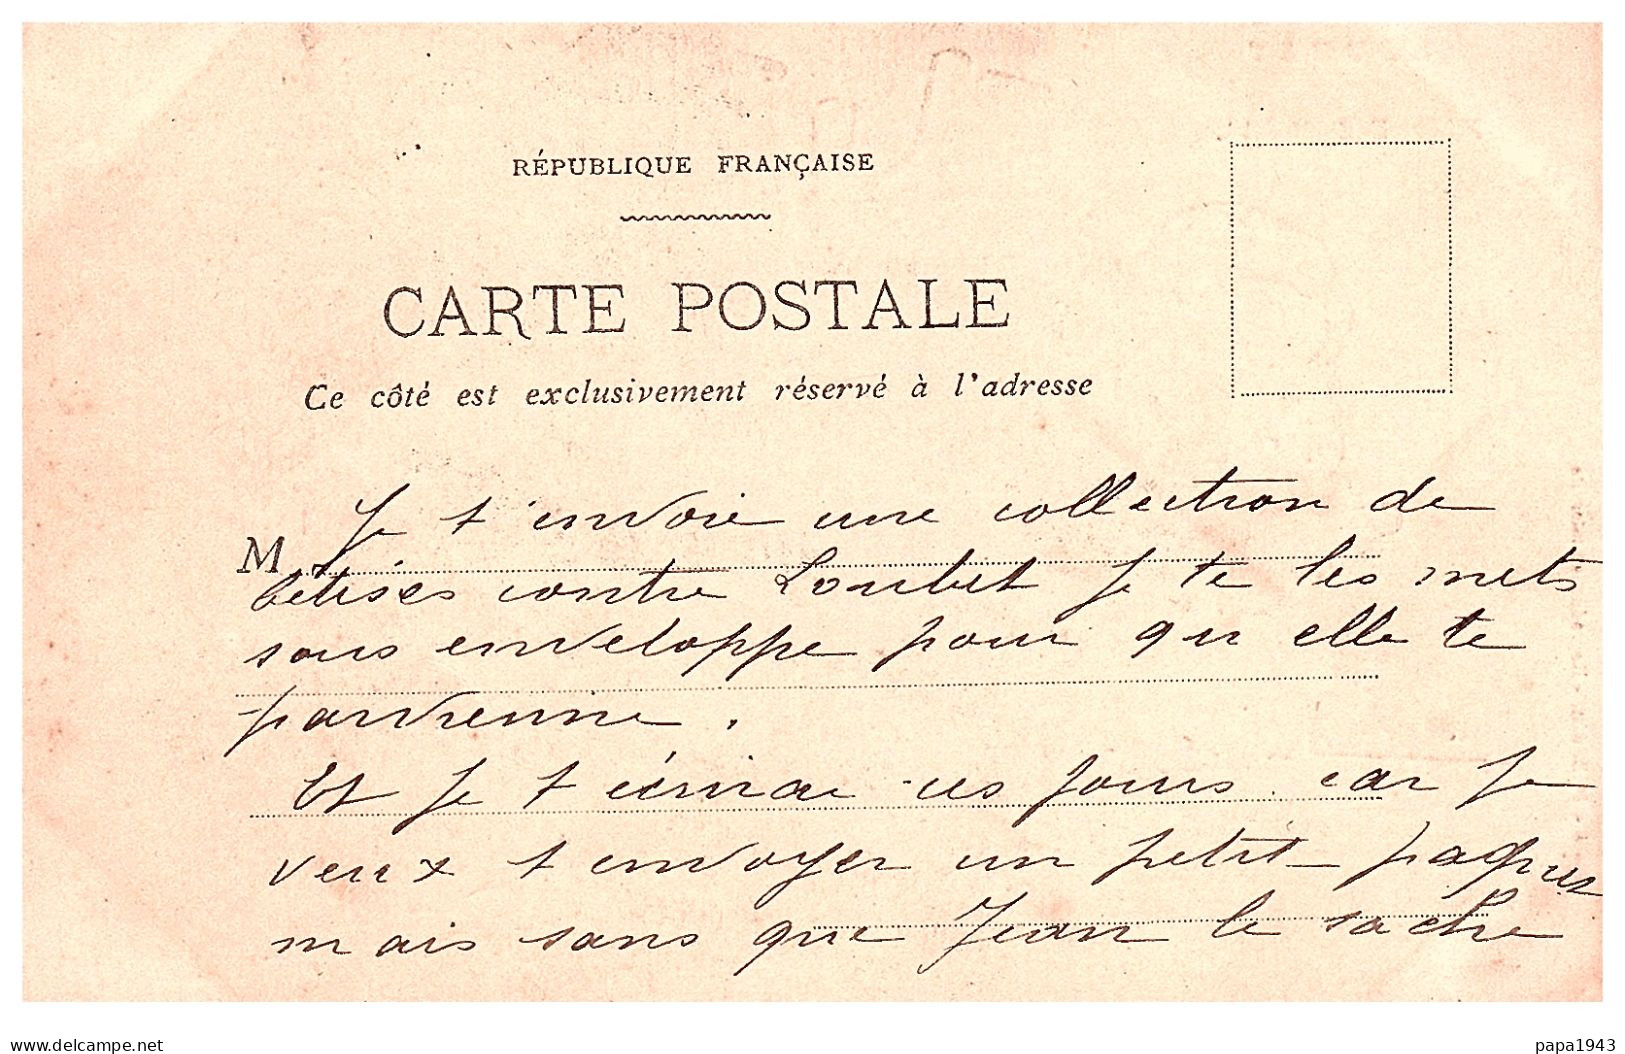 RÉPUBLIQUE FRANÇAISE
CARTE POSTALE
Ce côté est exclusivement réservé à l'adresse
Je t'envoie une collection de
M
bêtises contre Loubet Je te les mets
sous enveloppe pour qu elle te
parvienne.
Et Je t écrirai ces jours car Je
veux t envoyer un petit paquet
mais sans que Jean le sache
www.delcampe.net
papa1943